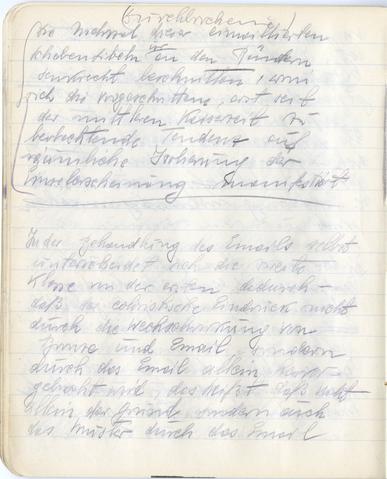 durchbrochene
Die Mehrzahl dieser emaillierten
Scheibenfibeln von den Rändern
senkrecht beschnitten, worin
sich die vorgeschrittene, erst seit
der mittleren Kaiserzeit zu
beobachtende Tendenz auf
räumliche Isolierung der
Einzelerscheinung manifestiert
In der Behandlung des Emails selbst
unterscheidet sich die zweite
Klasse von der ersten dadurch –
daß der coloristische Eindruck nicht
durch die Wechselwirkung von
Bronze und Email, sondern
durch das Email allein hervor
gebracht wird, das heißt daß nicht
allein der Grund, sondern auch
das Muster durch das Email